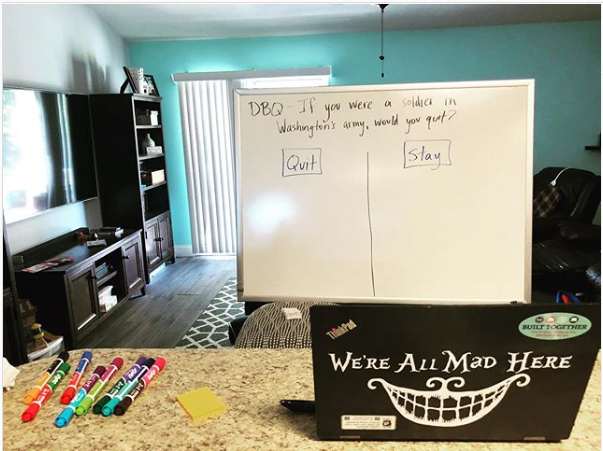 DBQ - If you were a soldier in
Washington's army, would you quit?
Quit
Stay
ThinkPad
BUILT TOGETHER
WE'RE ALL MAD HERE